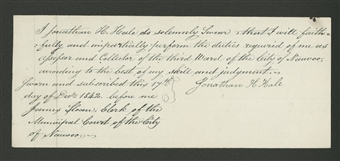 I Jonathan H. Hale do solemnly Swear that I will faith-
fully and impartially perform the duties required of me as
Assessor and Collector of the third Ward of the City of Nauvoo,
according to the best of my skill and judgment.
Sworn and subscribed this 17th Jonathan H Hale
day of Decr 1842. before me
James Sloan, Clerk of the
Municipal Court of the City
of Nauvoo